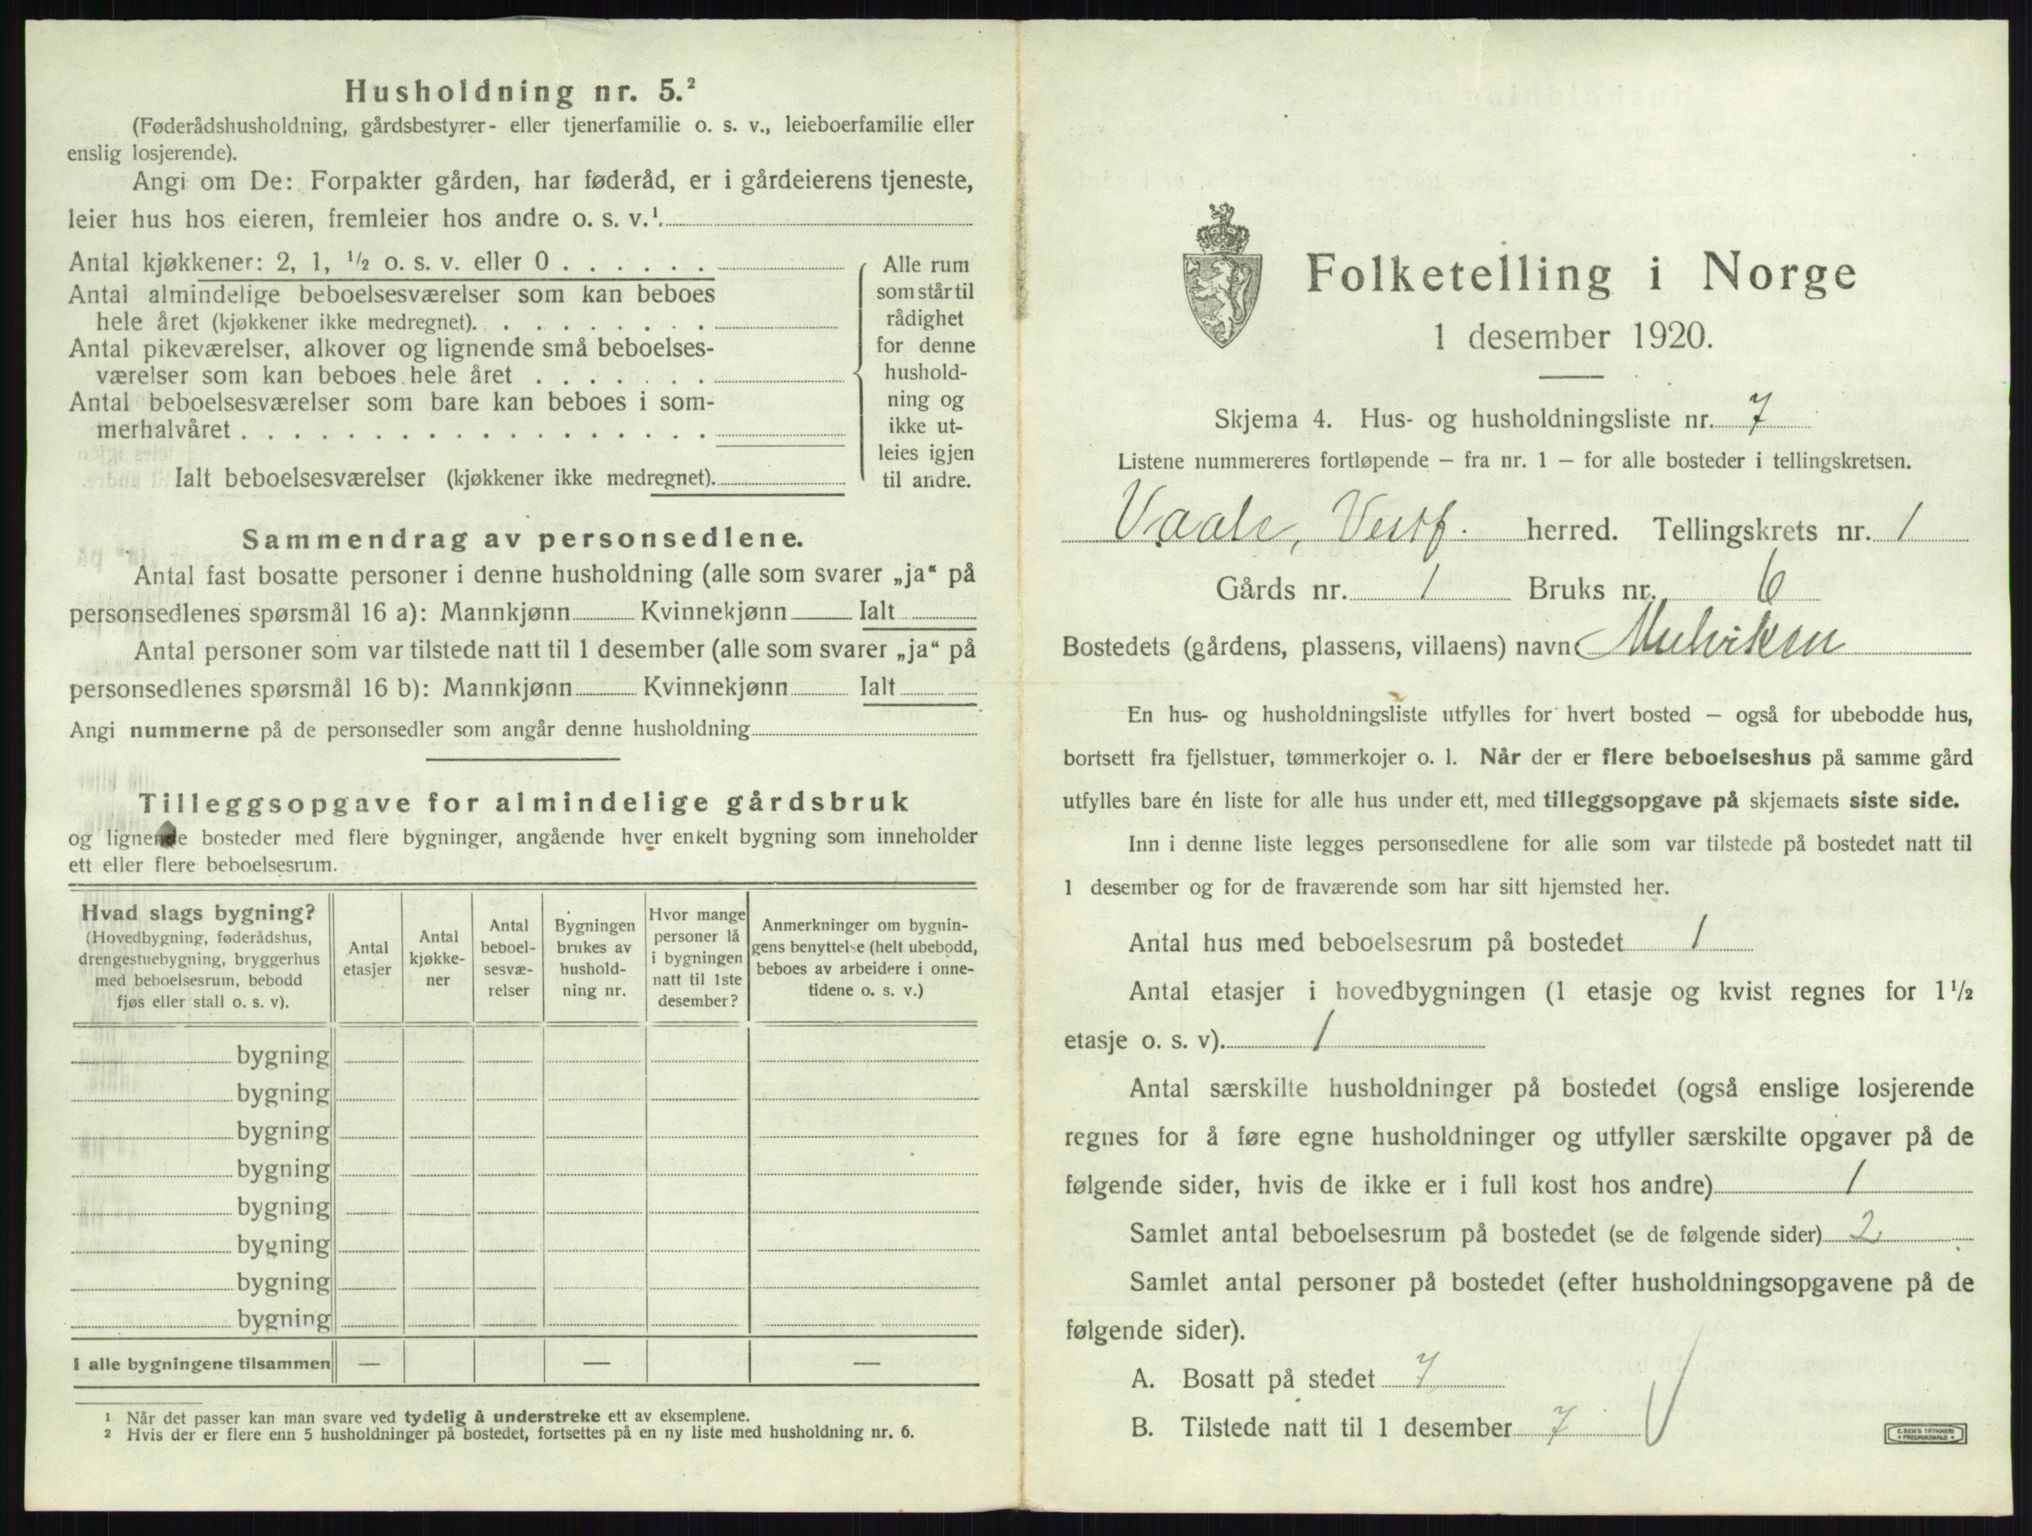 Husholdning nr. 5.²
(Føderådshusholdning, gårdsbestyrer- eller tjenerfamilie o. s. v., leieboerfamilie eller
enslig losjerende).
Angi om De: Forpakter gården, har føderåd, er i gårdeierens tjeneste,
leier hus hos eieren, fremleier hos andre o. s. v.¹.
Antal kjøkkener: 2, 1, ½ o. s. v. eller 0 . . . . . .
Antal almindelige beboelsesværelser som kan beboes
hele året (kjøkkener ikke medregnet). . . . . . . . .
Antal pikeværelser, alkover og lignende små beboelses-
værelser som kan beboes hele året . . . . . . .
Antal beboelsesværelser som bare kan beboes i som-
merhalvåret . . . . . . . . . . . . . . . . . .
Ialt beboelsesværelser (kjøkkener ikke medregnet).
Alle rum
som står til
rådighet
for denne
hushold-
ning og
ikke ut-
leies igjen
til andre.
Sammendrag av personsedlene.
Antal fast bosatte personer i denne husholdning (alle som svarer „ja“ på
personsedlenes spørsmål 16 a): Mannkjønn Kvinnekjønn Ialt
Antal personer som var tilstede natt til 1 desember (alle som svarer „ja“ på
personsedlenes spørsmål 16 b): Mannkjønn Kvinnekjønn Ialt
Angi nummerne på de personsedler som angår denne husholdning
Tilleggsopgave for almindelige gårdsbruk
og lignende bosteder med flere bygninger, angående hver enkelt bygning som inneholder
ett eller flere beboelsesrum.
Hvad slags bygning?
(Hovedbygning, føderådshus,
drengestuebygning, bryggerhus
med beboelsesrum, bebodd
fjøs eller stall o. s. v).
Antal
etasjer
Antal
kjøkke-
ner
Antal
beboel-
sesvæ-
relser
Bygningen
brukes av
hushold-
ning nr.
Hvor mange
personer lå
i bygningen
natt til 1ste
desember?
Anmerkninger om bygnin-
gens benyttelse (helt ubebodd,
beboes av arbeidere i onne-
tidene o. s. v.)
bygning
bygning
bygning
bygning
bygning
bygning
bygning
bygning
I alle bygningene tilsammen — — —
¹ Når det passer kan man svare ved tydelig å understreke ett av eksemplene.
² Hvis der er flere enn 5 husholdninger på bostedet, fortsettes på en ny liste med husholdning nr. 6.
Folketelling i Norge
1 desember 1920.
Skjema 4. Hus- og husholdningsliste nr. 7
Listene nummereres fortløpende – fra nr. 1 – for alle bosteder i tellingskretsen.
Vaale, Vestf. herred. Tellingskrets nr. 1
Gårds nr. 1 Bruks nr. 6
Bostedets (gårdens, plassens, villaens) navn Mulviken
En hus- og husholdningsliste utfylles for hvert bosted – også for ubebodde hus,
bortsett fra fjellstuer, tømmerkojer o. l. Når der er flere beboelseshus på samme gård
utfylles bare én liste for alle hus under ett, med tilleggsopgave på skjemaets siste side.
Inn i denne liste legges personsedlene for alle som var tilstede på bostedet natt til
1 desember og for de fraværende som har sitt hjemsted her.
Antal hus med beboelsesrum på bostedet 1
Antal etasjer i hovedbygningen (1 etasje og kvist regnes for 1½
etasje o. s. v). 1
Antal særskilte husholdninger på bostedet (også enslige losjerende
regnes for å føre egne husholdninger og utfyller særskilte opgaver på de
følgende sider, hvis de ikke er i full kost hos andre) 1
Samlet antal beboelsesrum på bostedet (se de følgende sider) 2
Samlet antal personer på bostedet (efter husholdningsopgavene på de
følgende sider).
A. Bosatt på stedet 7
B. Tilstede natt til 1 desember 7